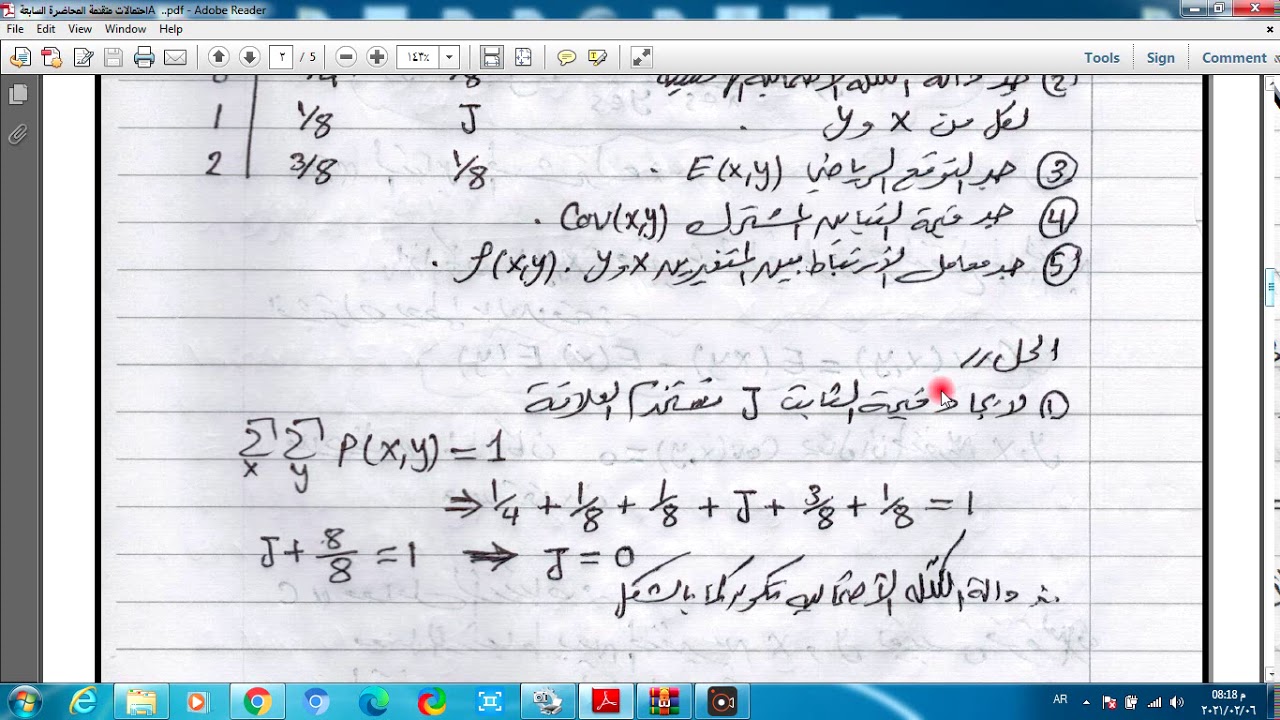 احتمالات متقدمة المحاضرة السابعة A..pdf - Adobe Reader
File Edit View Window Help
٢ / 5 ١٤٣٪ Tools Sign Comment
② جد دالة الكتلة الاحتمالية
1/8
لكل من X و y .
1 1/8 J
③ جد التوقع الرياضي E(x,y) .
2 3/8 1/8
④ جد قيمة التباين المشترك Cov(x,y) .
⑤ جد معامل الأرتباط بين المتغيرين X و y . ρ(x,y) .
الحل //
① لايجاد قيمة الثابت J نستخدم العلاقة
∑x ∑y P(x,y) = 1
⇒ 1/4 + 1/8 + 1/8 + J + 3/8 + 1/8 = 1
J + 8/8 = 1 ⇒ J = 0
دالة الكتلة الأحتمالية تكون كما بالشكل
AR
08:18 م
٢٠٢١/٠٢/٠٦